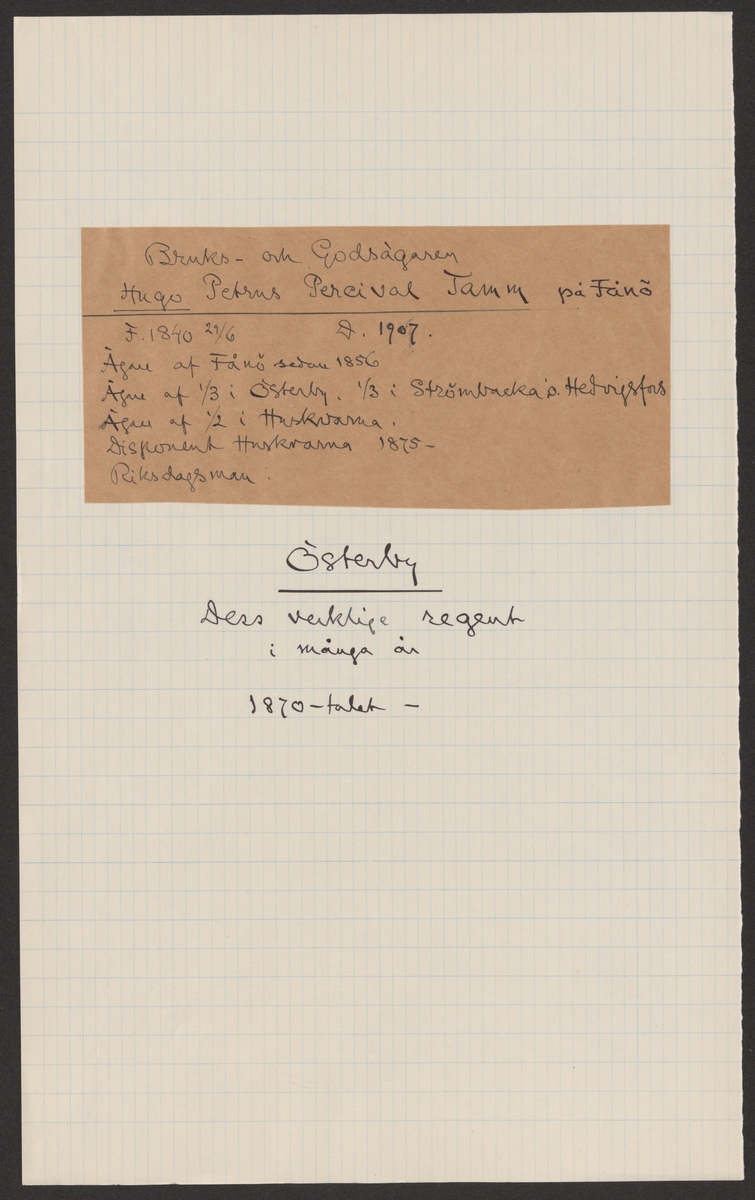 Bruks- och Godsägaren
Hugo Petrus Percival Tamm på Fånö
F. 1840 29/6 D. 1907.
Ägare af Fånö sedan 1856
Ägare af 1/3 i Österby. 1/3 i Strömbacka o. Hedvigsfors
Ägare af 1/2 i Huskvarna.
Disponent Huskvarna 1875-
Riksdagsman.
Österby
Dess verklige regent
i många år
1870-talet -